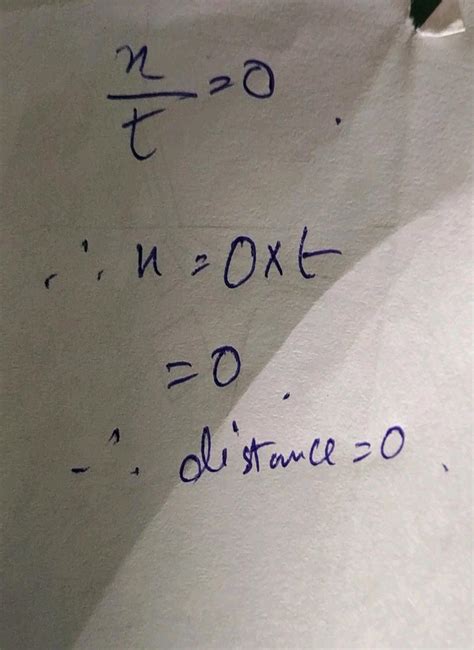 x/t=0
∴ x=0×t
=0
∴ distance=0